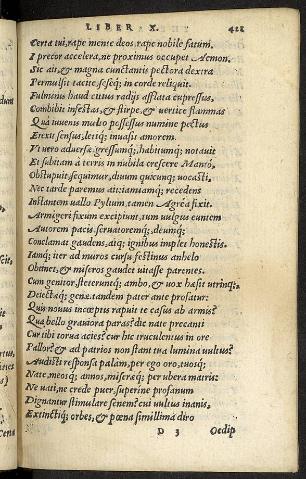 LIBER X. 421
Certa tui, rape mente deos, rape nobile fatum.
I precor accelera, ne proximus occupet Aemon.
Sic ait, & magna cunctantis pectora dextra
Permulsit tacite, seseq; in corde reliquit.
Fulminis haud citius radijs afflata cupressus,
Combibit infestas, & stirpe, & uertice flammas
Quā iuuenis multo possessus numine pectus
Erexit sensus, letiq; inuasit amorem.
Vt uero aduersae gressumq;, habitumq; notauit
Et subitam à terris in nubila crescere Mantó,
Obstupuit, sequimur, diuum quicunq; uocasti,
Nec tarde paremus ait: iamiamq; recedens
Instantem uallo Pylum, tamen Agrea fixit.
Armigeri fixum excipiunt, tum uulgus euntem
Autorem pacis, seruatoremq;, deumq;
Conclamat gaudens, atq; ignibus implet honestis.
Iamq; iter ad muros cursu festinus anhelo
Obtinet, & miseros gaudet uitasse parentes.
Cum genitor, steterunt q; ambo, & uox haesit utrinq;,
Deiectaeq; genae. tandem pater ante profatur:
Quis nouus inceptis rapuit te casus ab armis?
Qua bello grauiora paras? dic nate precanti
Cur tibi torua acies? cur hic truculentus in ore
Pallor? & ad patrios non stant tua lumina uultus?
Audisti responsa palàm, per ego oro, tuosq;
Nate, meosq; annos, miseraeq; per ubera matris:
Ne uati, ne crede puer. superine profanum
Dignantur stimulare senem? cui uultus inanis,
Extinctiq; orbes, & poena simillima diro
D 3 Oedip